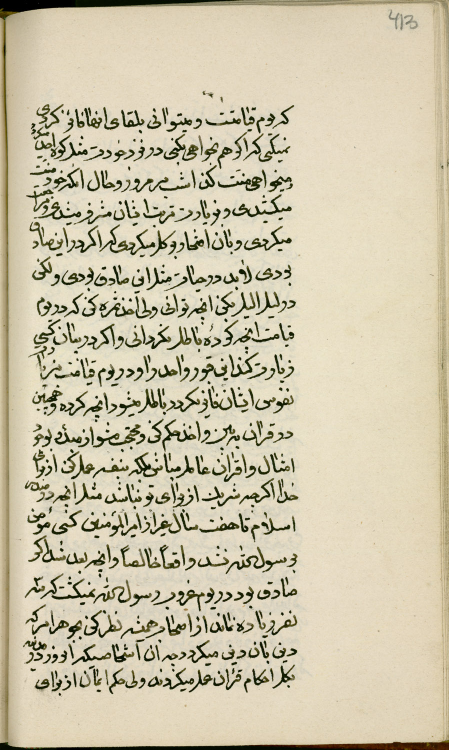 413
که یوم قیامت و میتوانی بلقای انها فائز کردی
نمیکنی که اکر هم بخواهی بکنی در فوز خود
میخواهی منت کذاشت بر مرور و حال انکه خود
میکشتدی و زیارت تربت ایشان مشرف میشدی
میکردی و بان افتخار بر کل میکردی که اکر در این صادق
بودی لابد در حیات مثل این صادق بودی ولکن
در لیل الیل بکن انچه توانی ولی اخذ ثمره کن که در یوم
قیامت انچه کرده باطل نکردانی و اکر در بیان کسی
زیارت کند این قبور واحد را و در یوم قیامت
نفوس ایشان فائز نکردد باطل میشود انچه کرده و همچنین
در قران به بین و اخذ حکم کن و محتجب مشو از مبدء
امثال و اقران عالم مباش بلکه بنفسه عمل کن از برای
خدا اکرچه شریک از برای تو نباشد مثل انچه در صدر
اسلام تا هفت سال غیر از امیر المؤمنین کسی مؤمن
برسول الله نشد واقعا خالصا و انچه بعد شد اکر
صادق بود در یوم عروج رسول الله نمیکشت که سه
نفر زیاده نماند از اصحاب همیشه نظر کن بجوهر امر که
دین بان دین میکردد چه ان اشخاصیکه انروز
بکل احکام قران عمل میکردند ولی حکم ایمان از برای